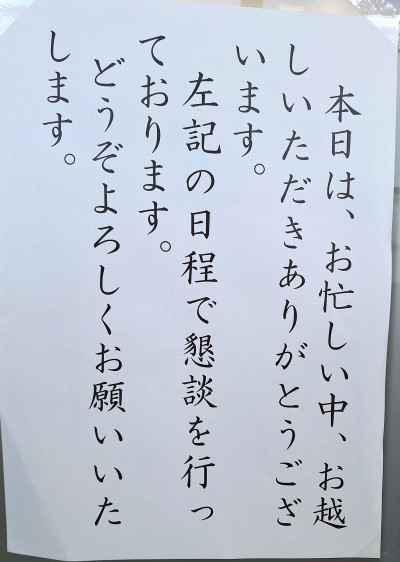 本日は、お忙しい中、お越
しいただきありがとうござ
います。
左記の日程で懇談を行っ
ております。
どうぞよろしくお願いいた
します。